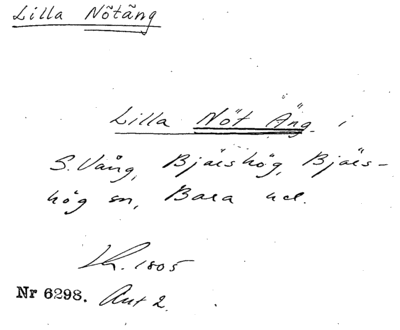 Lilla Nötäng
Lilla Nöt Äng i
S. Vång, Bjärshög, Bjärs-
hög sn, Bara hd.
Lh. 1805
Nr 6298. Akt 2.